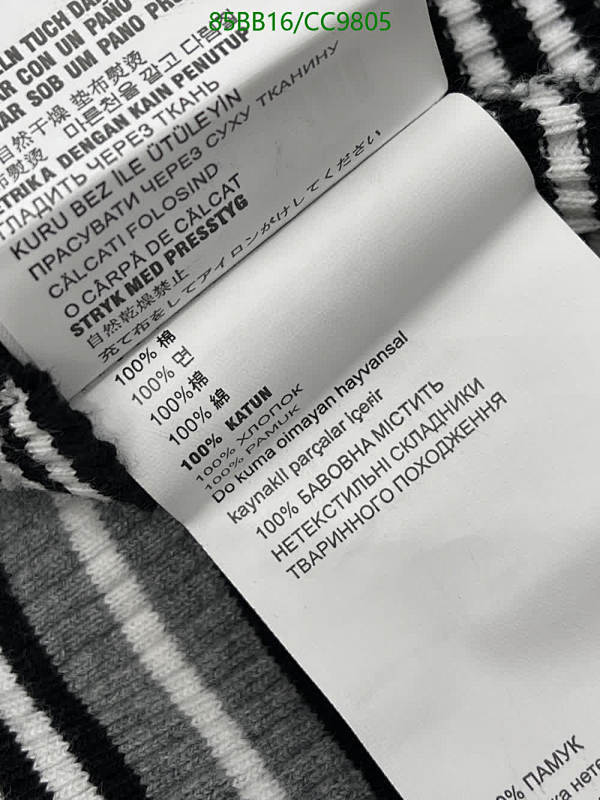 85BB16/CC9805
LN TUCH DA
AR CON UN PAÑO
AR SOB UM PANO PRO
自然干燥 垫布熨烫
마른천을 깔고 다
布熨烫
ETRIKA DENGAN KAIN PENUTUP
ГЛАДИТЬ ЧЕРЕЗ ТКАНЬ
KURU BEZ İLE ÜTÜLEYİN
ПРАСУВАТИ ЧЕРЕЗ СУХУ ТКАНИНУ
CĂLCATI FOLOSIND
O CÂRPĂ DE CĂLCAT
STRYK MED PRESSTYG
自然乾燥禁止
充て布をしてアイロンがけしてください
100% 棉
100% 면
100% 棉
100% 綿
100% KATUN
100% ХЛОПОК
100% PAMUK
Do kuma olmayan hayvansal
kaynakıl parçalar içerir
100% БАВОВНА МІСТИТЬ
НЕТЕКСТИЛЬНІ СКЛАДНИКИ
ТВАРИННОГО ПОХОДЖЕННЯ
0% ПАМУК
ка нете